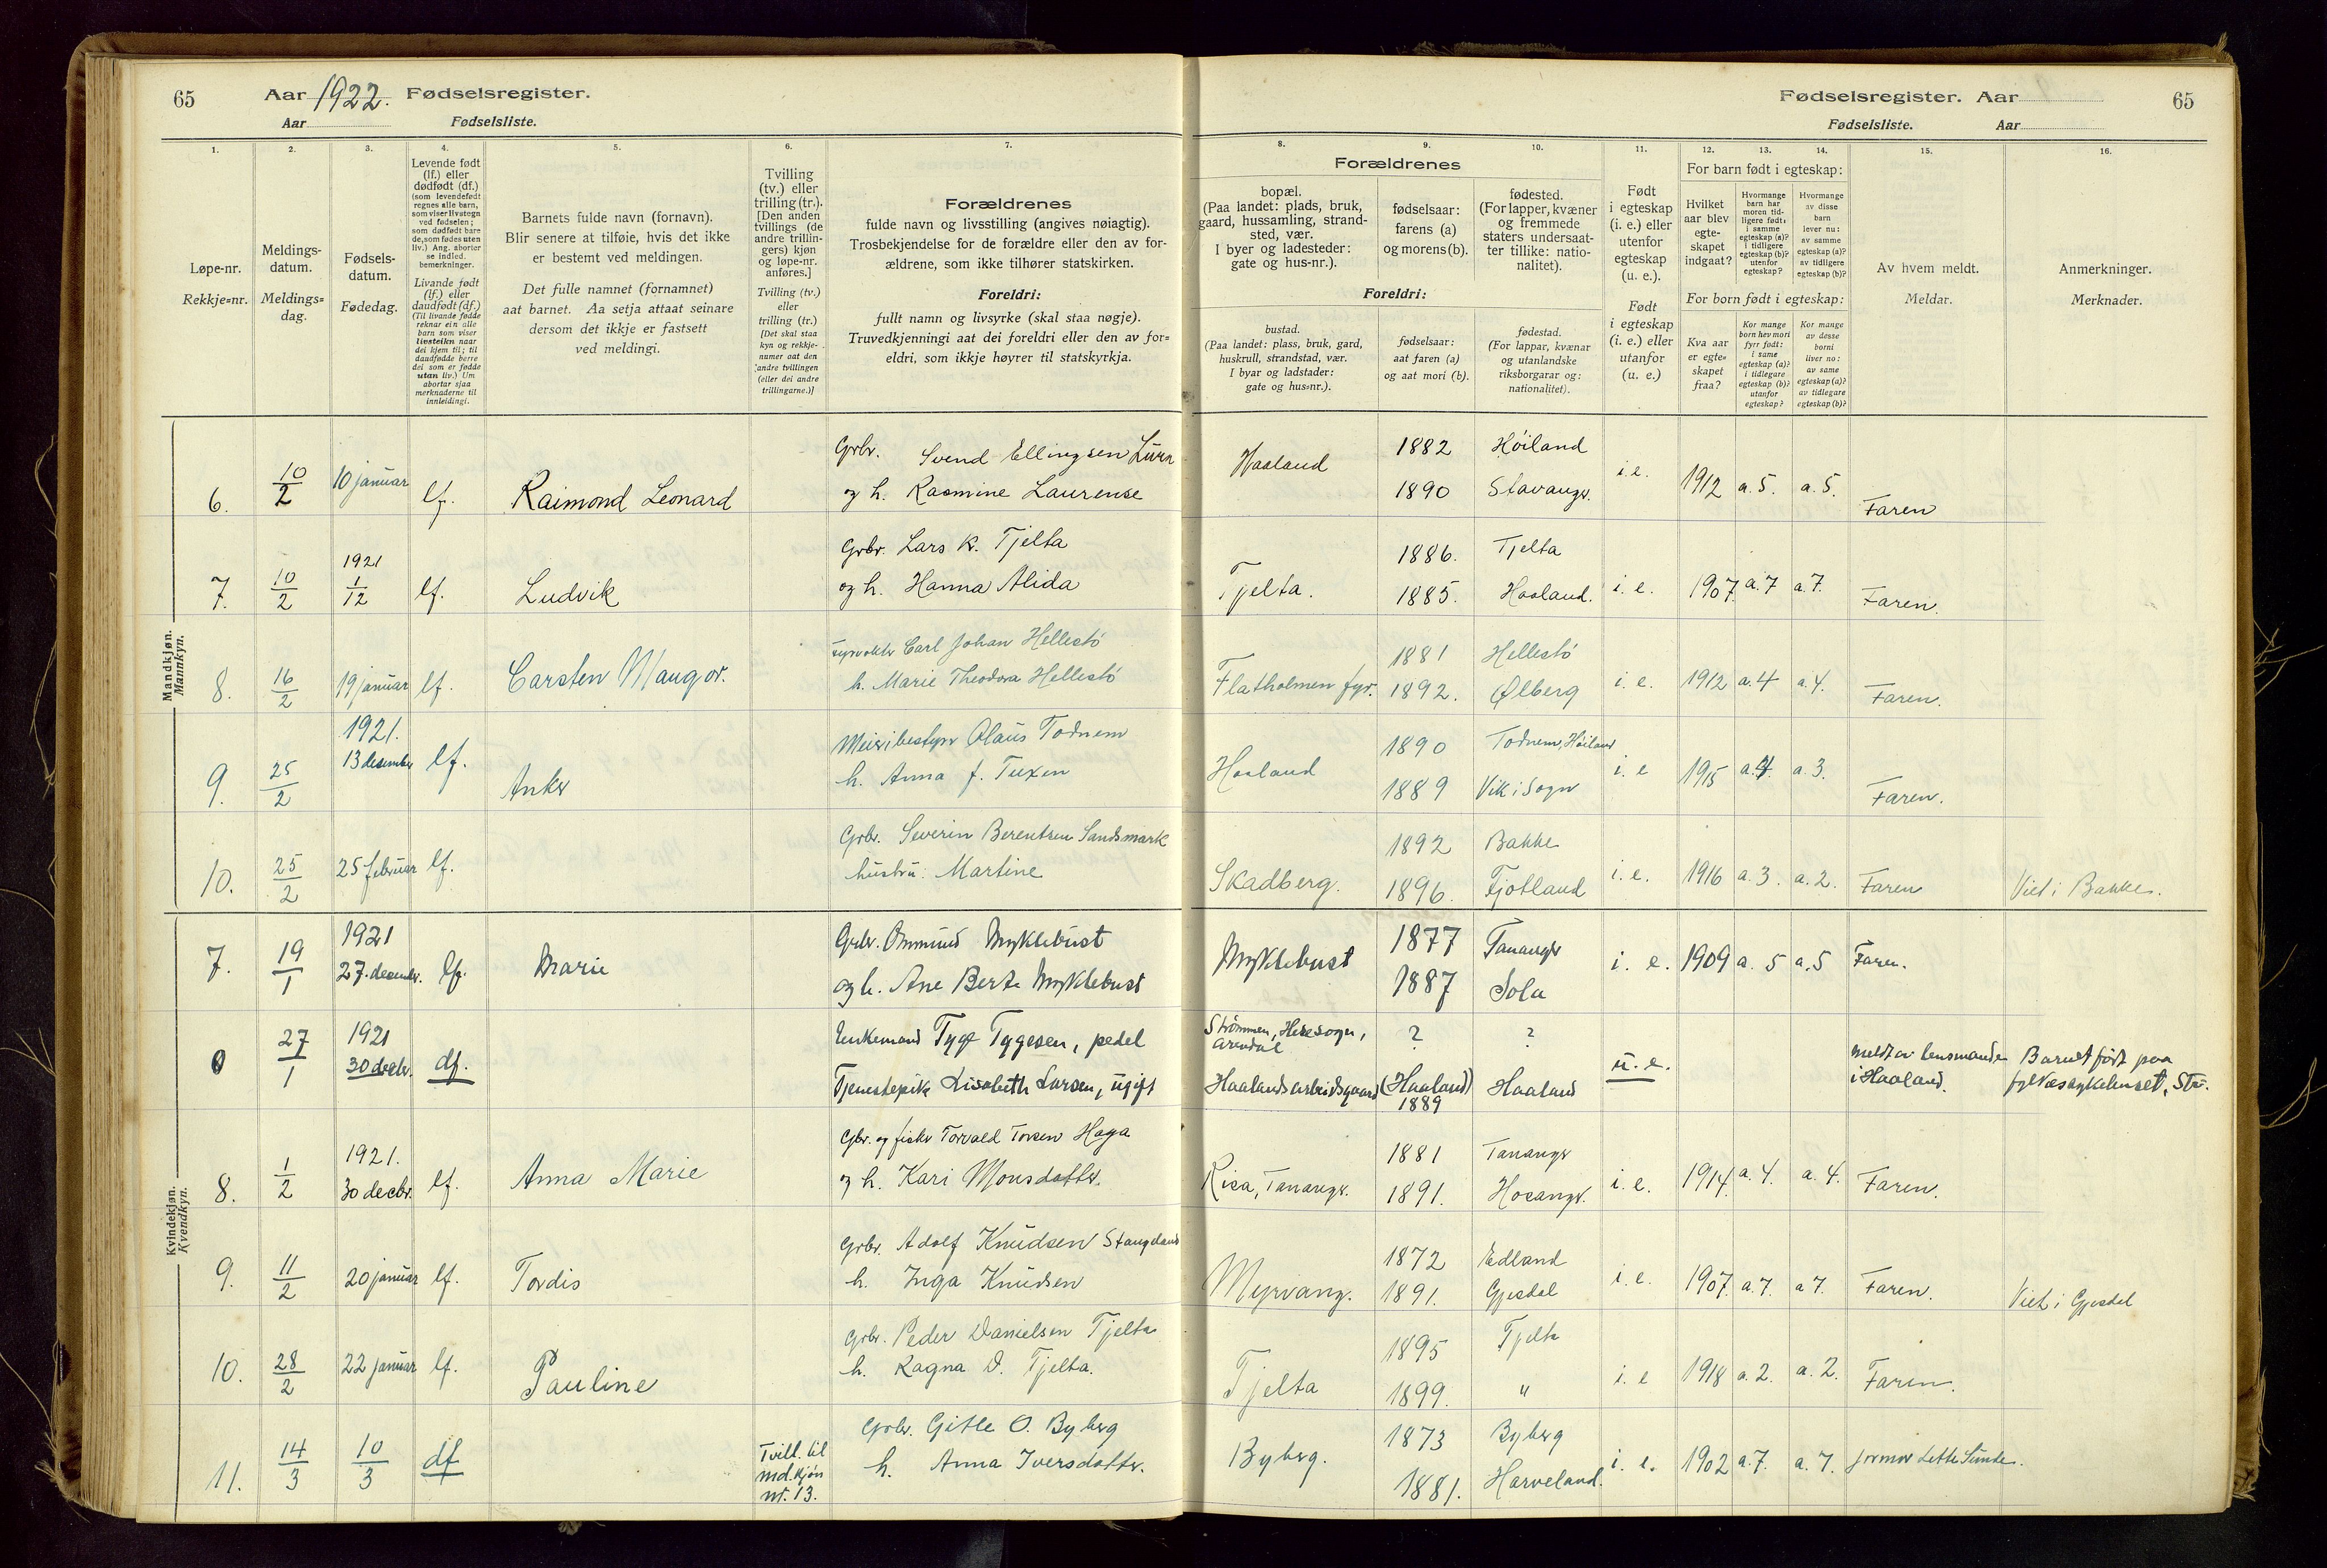 65
Aar 1922. Fødselsregister.
Aar Fødselsliste.
1.
Løpe-nr.
Rekkje=nr.
2.
Meldings-
datum.
Meldings=
dag.
3.
Fødsels-
datum.
Fødedag.
4.
Levende født
(lf.) eller
dødfødt (df.)
(som levendefødt
regnes alle barn,
som viser livstegn
ved fødselen;
som dødfødt bare
de, som fødes uten
liv.) Ang. aborter
se indled.
bemerkninger.
Livande født
(lf.) eller
daudfødt (df.)
(Til livande fødde
reknar ein alle
barn som viser
livsteikn naar
dei kjem til; til
daudfødde berre
dei som er fødde
utan liv.) Um
abortar sjaa
merknaderne til
innleidingi.
5.
Barnets fulde navn (fornavn).
Blir senere at tilføie, hvis det ikke
er bestemt ved meldingen.
Det fulle namnet (fornamnet)
aat barnet. Aa setja attaat seinare
dersom det ikkje er fastsett
ved meldingi.
6.
Tvilling
(tv.) eller
trilling (tr.).
[Den anden
tvillings (de
andre trillin-
gers) kjøn
og løpe-nr.
anføres.]
Tvilling (tv.)
eller
trilling (tr.)
[Det skal staa
kyn og rekkje-
numer aat den
andre tvillingen
(eller dei andre
trillingarne.)]
7.
Forældrenes
fulde navn og livsstilling (angives nøiagtig).
Trosbekjendelse for de forældre eller den av for-
ældrene, som ikke tilhører statskirken.
Foreldri:
fullt namn og livsyrke (skal staa nøgje).
Truvedkjenningi aat dei foreldri eller den av for=
eldri, som ikkje høyrer til statskyrkja.
Fødselsregister. Aar
65
Fødselsliste. Aar
Forældrenes
8.
bopæl.
(Paa landet: plads, bruk,
gaard, hussamling, strand-
sted, vær.
I byer og ladesteder:
gate og hus-nr.).
9.
fødselsaar:
farens (a)
og morens (b).
10.
fødested.
(For lapper, kvæner
og fremmede
staters undersaat-
ter tillike: natio-
nalitet).
Foreldri:
bustad.
(Paa landet: plass, bruk, gard,
huskrull, strandstad, vær.
I byar og ladstader:
gate og hus=nr.).
fødselsaar:
aat faren (a)
og aat mori (b).
fødestad.
(For lappar, kvænar
og utanlandske
riksborgarar og:
nationalitet).
11.
Født
i egteskap
(i. e.) eller
utenfor
egteskap
(u. e.).
Født
i egteskap
(i. e.) eller
utanfor
(u. e.)
12. 13. 14.
For barn født i egteskap:
Hvilket
aar blev
egte-
skapet
indgaat?
Hvormange
barn har
moren tid-
ligere født:
i samme
egteskap (a)?
i tidligere
egteskap (b)?
utenfor
egteskap?
Hvormange
av disse
barn
lever nu:
av samme
egteskap (a)?
av tidligere
egteskap (b)?
For born født i egteskap:
Kva aar
er egte=
skapet
fraa?
Kor mange
born hev mori
fyrr født:
i same
egteskap (a)?
i tidlegare
egteskap (b)?
utanfor
egteskap?
Kor mange
av desse
borni
liver no:
av same
egteskap (a)?
av tidlegare
egteskap (b)?
15.
Av hvem meldt.
Meldar.
16.
Anmerkninger.
Merknader.
Mandkjøn.
Mannkyn.
6. 10/2 10 januar lf. Raimond Leonard Grbr. Svend Ellingsen Lura
og h. Rasmine Laurense
Haaland 1882 Høiland i.e. 1912 a. 5. a. 5. Faren
1890 Stavanger.
7. 10/2 1921 1/12 lf. Ludvik Grbr. Lars K. Tjelta
og h. Hanna Alida
Tjelta. 1886. Tjelta i. e. 1907. a. 7 a 7. Faren.
1885. Haaland.
8. 16/2 19 januar lf. Carsten Maugor. Carl Johan Hellestö
h. Marie Theodora Hellestö
Flatholmen fyr. 1881 Hellestö i. e. 1912 a. 4 a. 4. Faren.
1892. Ølberg
9. 25/2 1921. 13 desember lf. Anker Meieribestyrer Olaus Todnem
h. Anna J. Tuxen
Haaland 1890 Todnem, Høiland i. e 1915 a. 4. a. 3. Faren.
1889 Vik i Sogn
10. 25/2 25 februar lf. Grbr. Severin Berentsen Sandsmark
hustru: Martine
Skadberg. 1892 Bakke i. e. 1916 a. 3. a. 2. Faren Viet i Bakke.
1896. Fjotland
Kvindekjøn.
Kvendkyn.
7. 19/1 1921 27. decembr. lf. Marie Grbr. Ommund Myklebust
og h. Ane Berta Myklebust
Myklebust 1877 Tananger i. e. 1909 a. 5 a. 5 Faren.
1887 Sola
0 27/1 1921 30 decbr. df. Enkemand Tyge Tygesen, pedel
Tjenestepike Lisabeth Larsen, ugift
Strömmen, Hisesogn,
Arendal ? ?
Haalands arbeidsgaard (Haaland) 1889 Haaland u. e. meldt av lensmanden
i Haaland. Barnet født paa
sykehuset, Str.
8. 1/2 1921. 30 decbr. lf. Anna Marie Gbr. og fisker Torvald Torsen Haga
og h. Kari Monsdatter.
Risa, Tananger. 1881 Tananger i. e. 1914. a. 4. a. 4. Faren.
1891. Hosanger.
9. 11/2 20 januar lf. Tordis Grbr. Adolf Knudsen Stangeland
h. Inga Knudsen
Myrvang. 1872 Edland i. e. 1907. a. 7. a 7. Faren. Viet i Gjesdal
1891. Gjesdal
10. 28/2 22 januar lf. Pauline Grbr. Peder Danielsen Tjelta
h. Ragna D. Tjelta.
Tjelta 1895 Tjelta i. e 1918 a. 2. a. 2. Faren.
1899. "
11. 14/3 10/3 df Tvill. til
md. kjøn
nr. 13. Grbr. Gitle O. Byberg
h. Anna Iversdatter.
Byberg. 1873 Byberg i. e. 1902 a. 7. a. 7. jormor Lette Sunde.
1881. Harveland.